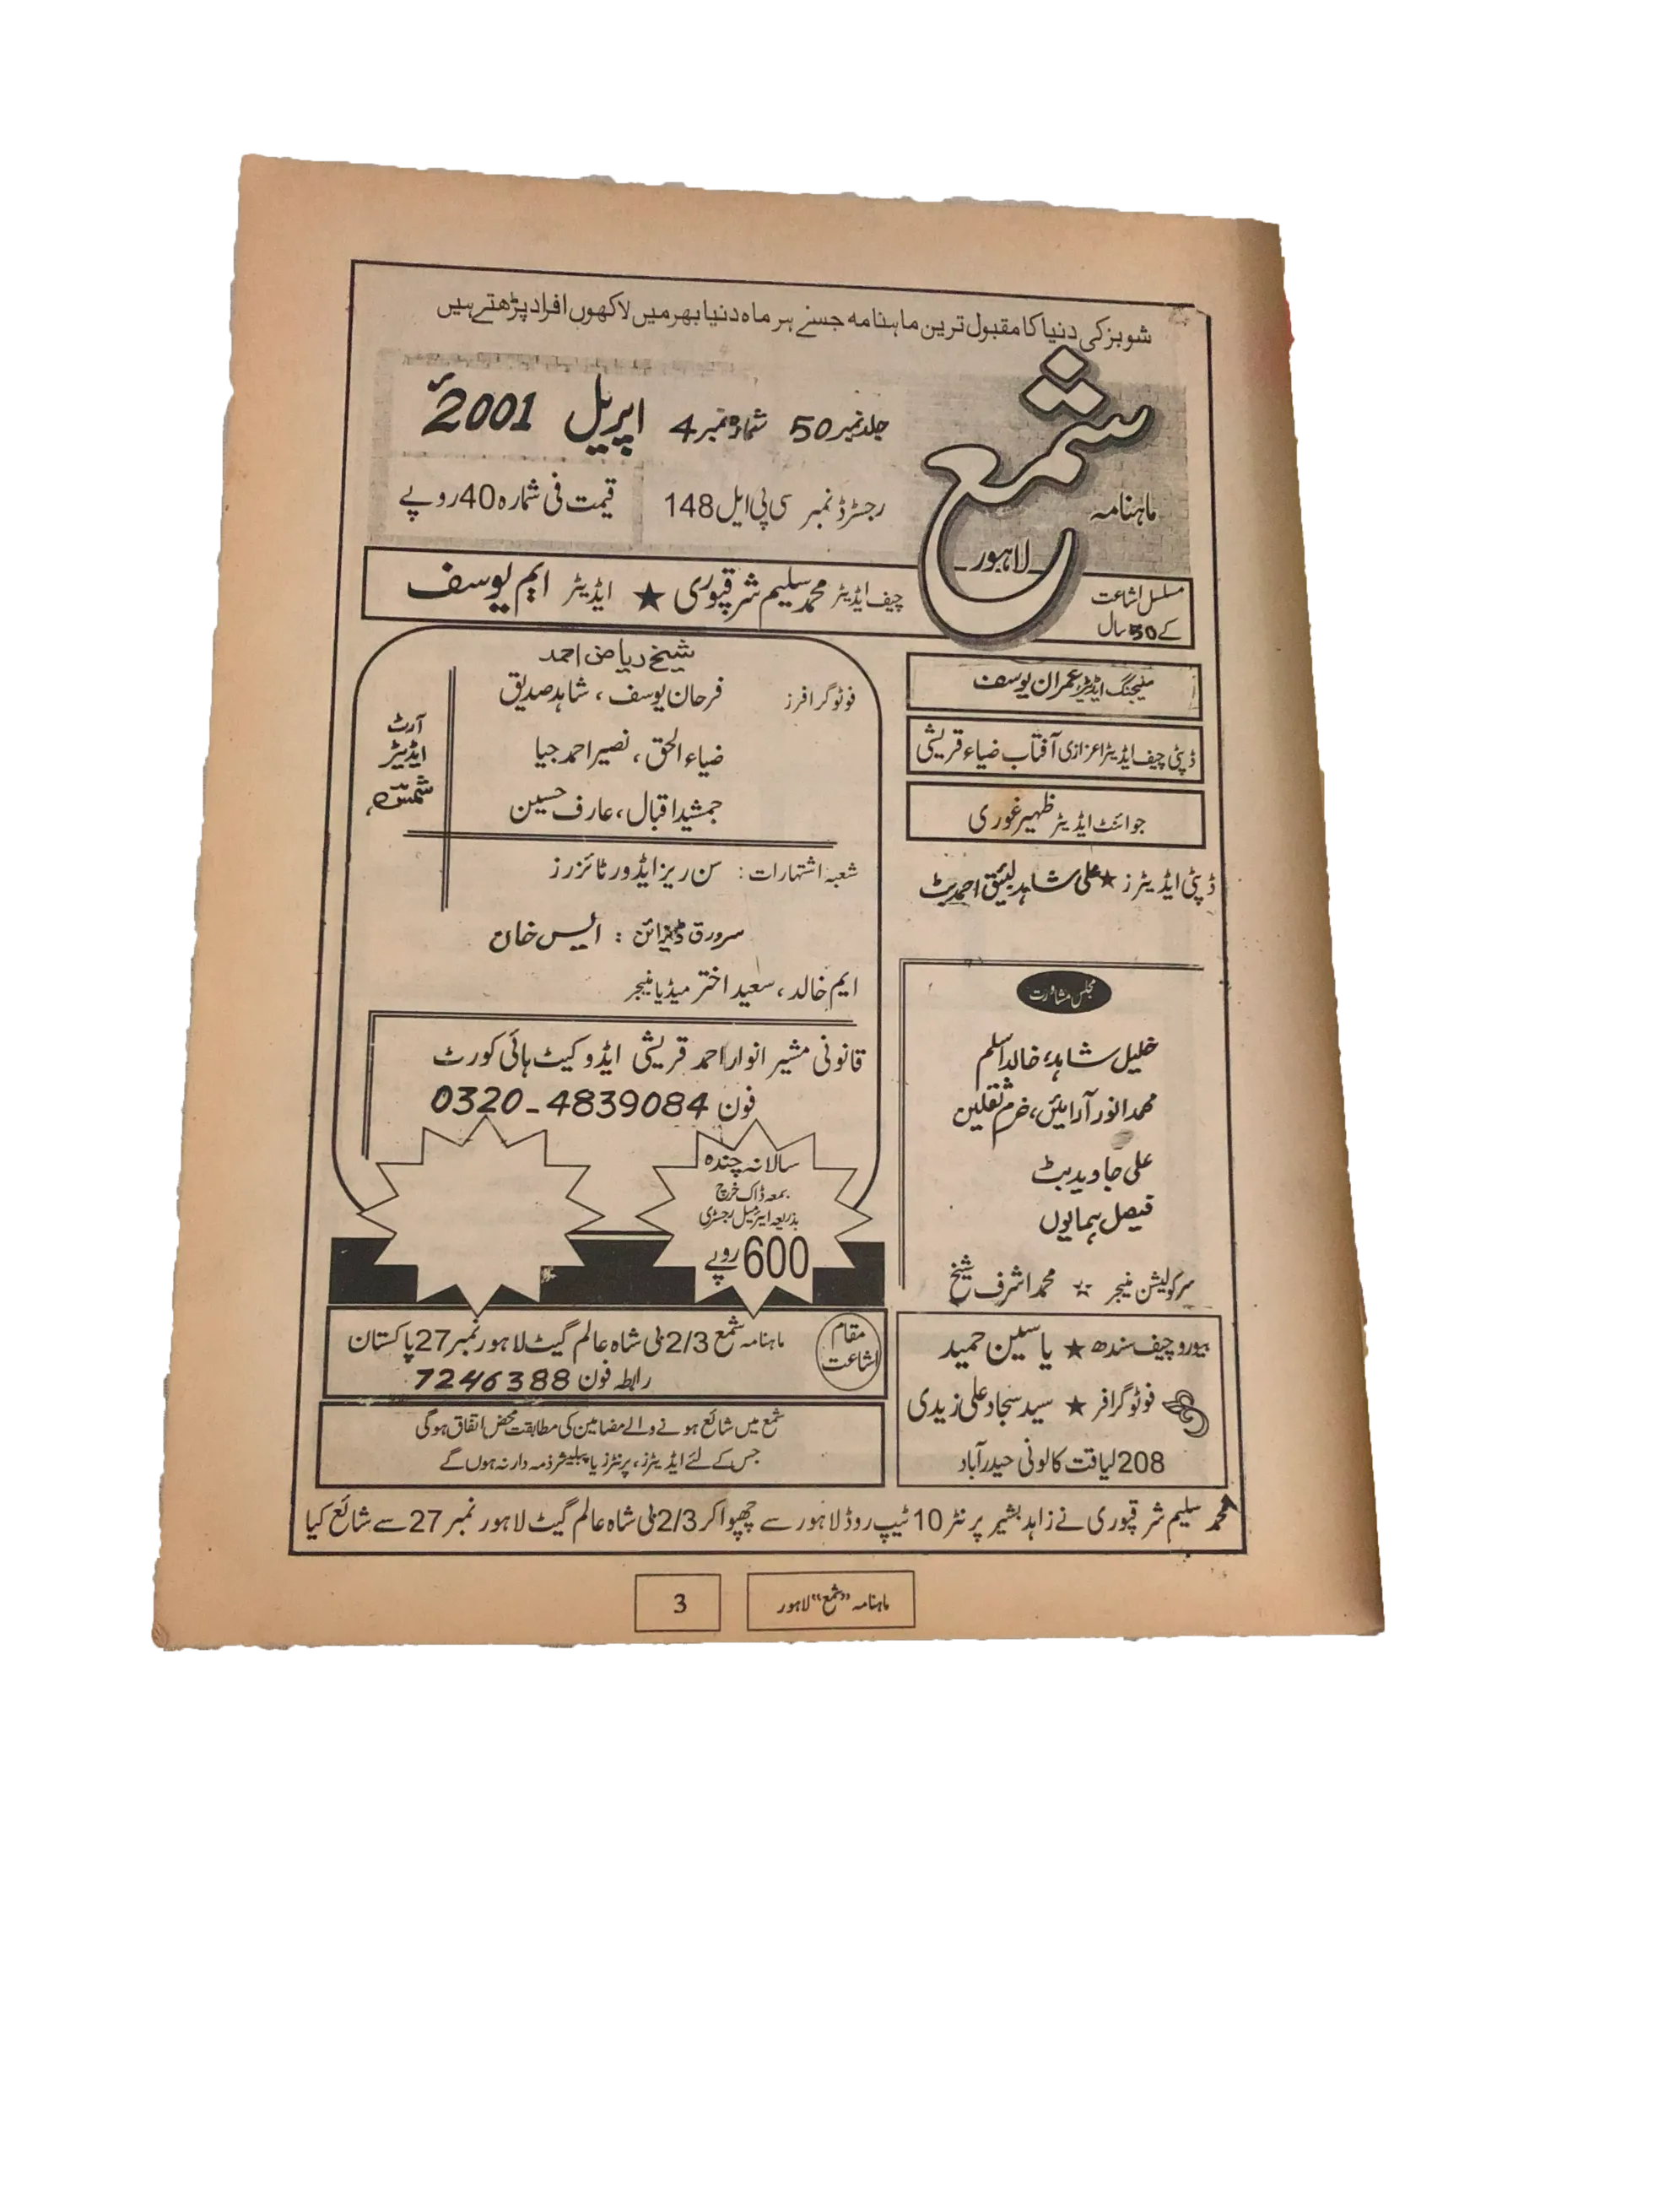 شوبز کی دنیا کا مقبول ترین ماہنامہ جسے ہر ماہ دنیا بھر میں لاکھوں افراد پڑھتے ہیں
ماہنامہ
شمع
لاہور
جلد نمبر 50 شمارہ نمبر 4 اپریل 2001ء
رجسٹرڈ نمبر سی پی ایل 148
قیمت فی شمارہ 40 روپے
مسلسل اشاعت
کے 50 سال
چیف ایڈیٹر محمد سلیم شرقپوری ★ ایڈیٹر ایم یوسف
منیجنگ ایڈیٹر عمران یوسف
ڈپٹی چیف ایڈیٹر اعزازی آفتاب ضیاء قریشی
جوائنٹ ایڈیٹر ظہیر غوری
ڈپٹی ایڈیٹرز ★ علی شاہد لئیق احمد بٹ
مجلس مشاورت
خلیل شاہد، خالد اسلم
محمد انور آرائیں، خرم ثقلین
علی جاوید بٹ
فیصل ہمایوں
سرکولیشن منیجر ☆ محمد اشرف شیخ
بیورو چیف سندھ ★ یاسین حمید
فوٹوگرافر ★ سید سجاد علی زیدی
208 لیاقت کالونی حیدرآباد
شیخ ریاض احمد
فوٹوگرافرز فرحان یوسف، شاہد صدیق
ضیاء الحق، نصیر احمد جیا
جمشید اقبال، عارف حسین
آرٹ
ایڈیٹر
شعبہ اشتہارات: سن ریز ایڈورٹائزرز
سرورق ڈیزائن: ایس خان
ایم خالد، سعید اختر میڈیا منیجر
قانونی مشیر انوار احمد قریشی ایڈوکیٹ ہائی کورٹ
فون 0320-4839084
سالانہ چندہ
بمعہ ڈاک خرچ
بذریعہ ایئرمیل رجسٹری
600 روپے
مقام
اشاعت
ماہنامہ شمع 2/3 بی شاہ عالم گیٹ لاہور نمبر 27 پاکستان
رابطہ فون 7246388
شمع میں شائع ہونے والے مضامین کی مطابقت محض اتفاق ہوگی
جس کے لئے ایڈیٹرز، پرنٹرز یا پبلیشر ذمہ دار نہ ہوں گے
محمد سلیم شرقپوری نے زاہد بشیر پرنٹر 10 ٹیپ روڈ لاہور سے چھپوا کر 2/3 بی شاہ عالم گیٹ لاہور نمبر 27 سے شائع کیا
ماہنامہ "شمع" لاہور
3